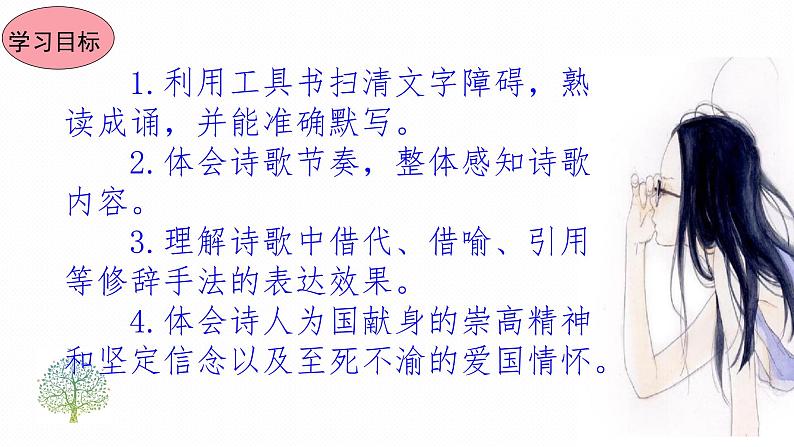 学习目标
1.利用工具书扫清文字障碍，熟
读成诵，并能准确默写。
2.体会诗歌节奏，整体感知诗歌
内容。
3.理解诗歌中借代、借喻、引用
等修辞手法的表达效果。
4.体会诗人为国献身的崇高精神
和坚定信念以及至死不渝的爱国情怀。